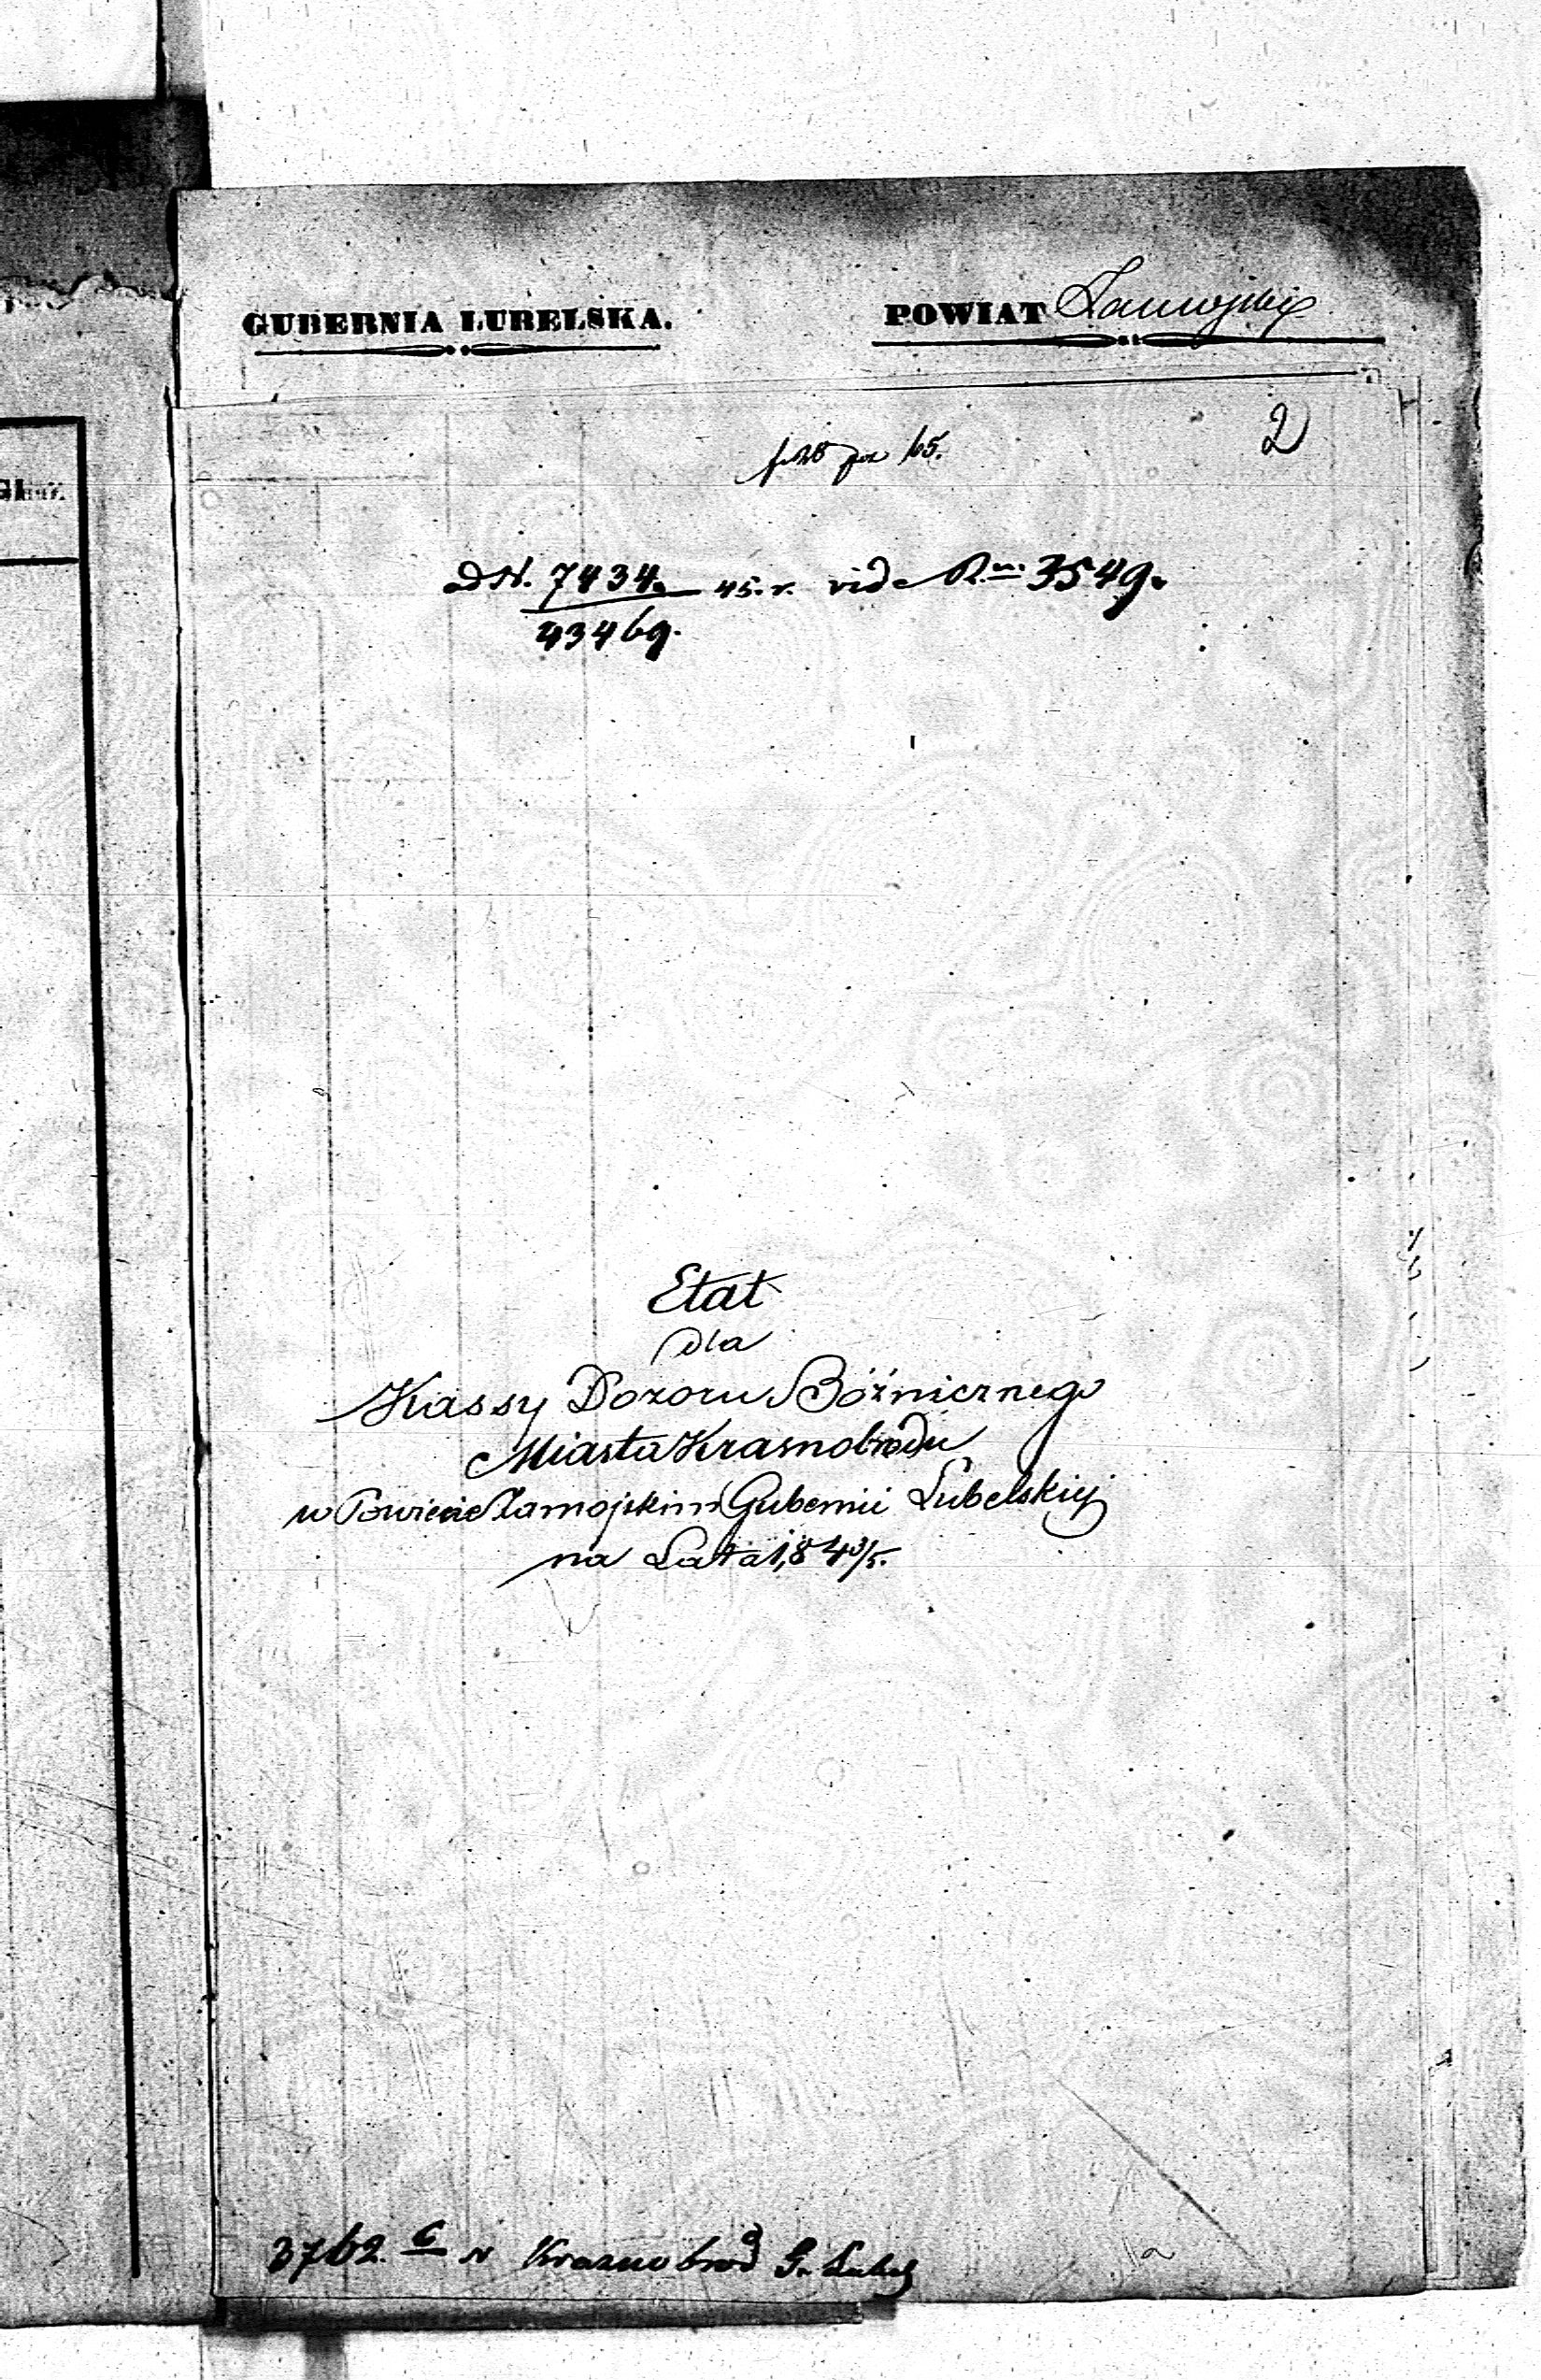 GUBERNIA LUBELSKA.
POWIAT Zamojski
2
ad N. 7434. 45. r. vide 3549.
43469.
Etat
dla
Kassy Dozoru Bóżnicznego
Miasta Krasnobrodu
w Powiecie Zamojskim Gubernii Lubelskiej
na Lata 1843/5.
3762. Krasnobrod G. Lubel